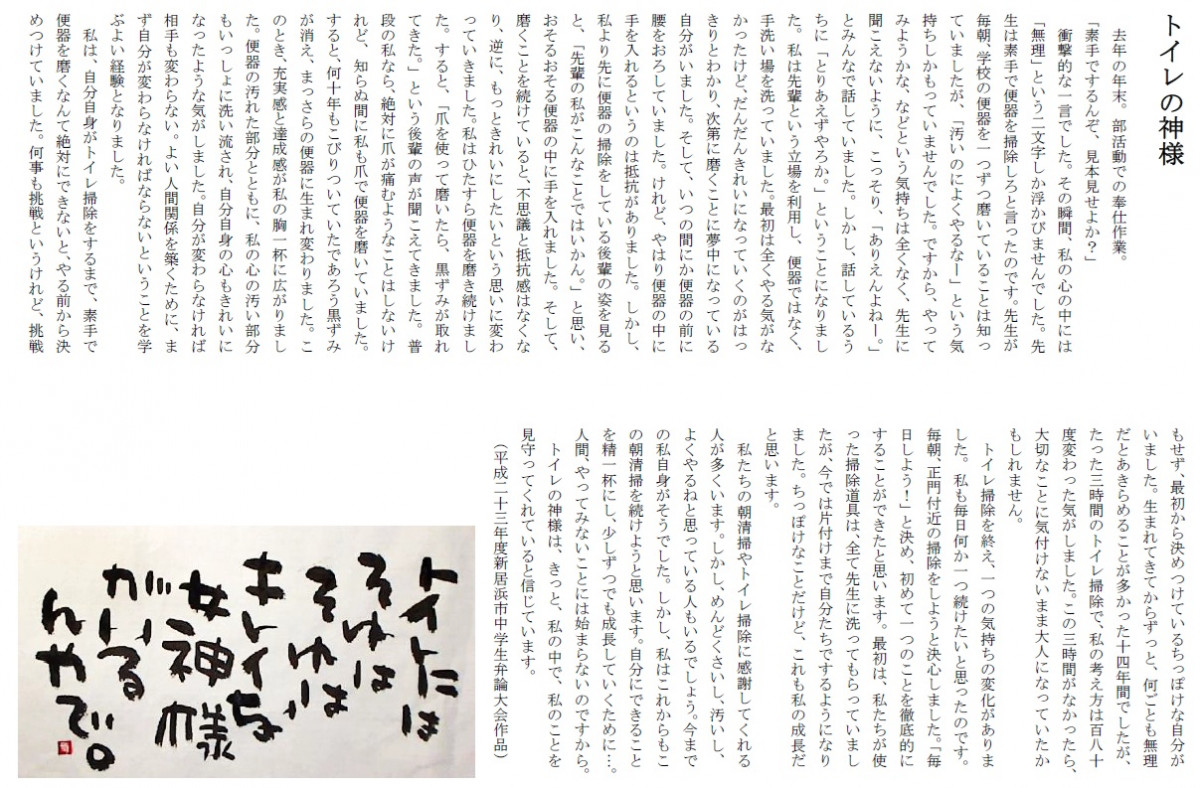 トイレの神様
　去年の年末。部活動での奉仕作業。
「素手でするんぞ、見本見せよか？」
　衝撃的な一言でした。その瞬間、私の心の中には
「無理」という二文字しか浮かびませんでした。先
生は素手で便器を掃除しろと言ったのです。先生が
毎朝、学校の便器を一つずつ磨いていることは知っ
ていましたが、「汚いのによくやるなー」という気
持ちしかもっていませんでした。ですから、やって
みようかな、などという気持ちは全くなく、先生に
聞こえないように、こっそり、「ありえんよねー。」
とみんなで話していました。しかし、話しているう
ちに「とりあえずやろか。」ということになりまし
た。私は先輩という立場を利用し、便器ではなく、
手洗い場を洗っていました。最初は全くやる気がな
かったけど、だんだんきれいになっていくのがはっ
きりとわかり、次第に磨くことに夢中になっている
自分がいました。そして、いつの間にか便器の前に
腰をおろしていました。けれど、やはり便器の中に
手を入れるというのは抵抗がありました。しかし、
私より先に便器の掃除をしている後輩の姿を見る
と、「先輩の私がこんなことではいかん。」と思い、
おそるおそる便器の中に手を入れました。そして、
磨くことを続けていると、不思議と抵抗感はなくな
り、逆に、もっときれいにしたいという思いに変わ
っていきました。私はひたすら便器を磨き続けまし
た。すると、「爪を使って磨いたら、黒ずみが取れ
てきた。」という後輩の声が聞こえてきました。普
段の私なら、絶対に爪が痛むようなことはしないけ
れど、知らぬ間に私も爪で便器を磨いていました。
すると、何十年もこびりついていたであろう黒ずみ
が消え、まっさらの便器に生まれ変わりました。こ
のとき、充実感と達成感が私の胸一杯に広がりまし
た。便器の汚れた部分とともに、私の心の汚い部分
もいっしょに洗い流され、自分自身の心もきれいに
なったような気がしました。自分が変わらなければ
相手も変わらない。よい人間関係を築くために、ま
ず自分が変わらなければならないということを学
ぶよい経験となりました。
　私は、自分自身がトイレ掃除をするまで、素手で
便器を磨くなんて絶対にできないと、やる前から決
めつけていました。何事も挑戦というけれど、挑戦
もせず、最初から決めつけているちっぽけな自分が
いました。生まれてきてからずっと、何ごとも無理
だとあきらめることが多かった十四年間でしたが、
たった三時間のトイレ掃除で、私の考え方は百八十
度変わった気がしました。この三時間がなかったら、
大切なことに気付けないまま大人になっていたか
もしれません。
　トイレ掃除を終え、一つの気持ちの変化がありま
した。私も毎日何か一つ続けたいと思ったのです。
毎朝、正門付近の掃除をしようと決心しました。「毎
日しよう！」と決め、初めて一つのことを徹底的に
することができたと思います。最初は、私たちが使
った掃除道具は、全て先生に洗ってもらっていまし
たが、今では片付けまで自分たちでするようになり
ました。ちっぽけなことだけど、これも私の成長だ
と思います。
　私たちの朝清掃やトイレ掃除に感謝してくれる
人が多くいます。しかし、めんどくさいし、汚いし、
よくやるねと思っている人もいるでしょう。今まで
の私自身がそうでした。しかし、私はこれからもこ
の朝清掃を続けようと思います。自分にできること
を精一杯にし、少しずつでも成長していくために…。
人間、やってみないことには始まらないのですから。
　トイレの神様は、きっと、私の中で、私のことを
見守ってくれていると信じています。
（平成二十三年度新居浜市中学生弁論大会作品）
トイレには
それは
それは
キレイな
女神様
がいる
んやで。